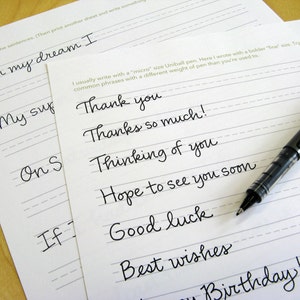 the sentences. (Then
on my dream I
My sup
On S
If I
I usually write with a "micro" size Uniball pen. Here I write with a bolder "fine"
common phrases with a different weight of pen than you're used to.
Thank you
Thanks so much!
Thinking of you
Hope to see you soon
Good luck
Best wishes
Birthday!